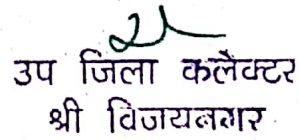 उप जिला कलैक्टर
श्री विजयनगर